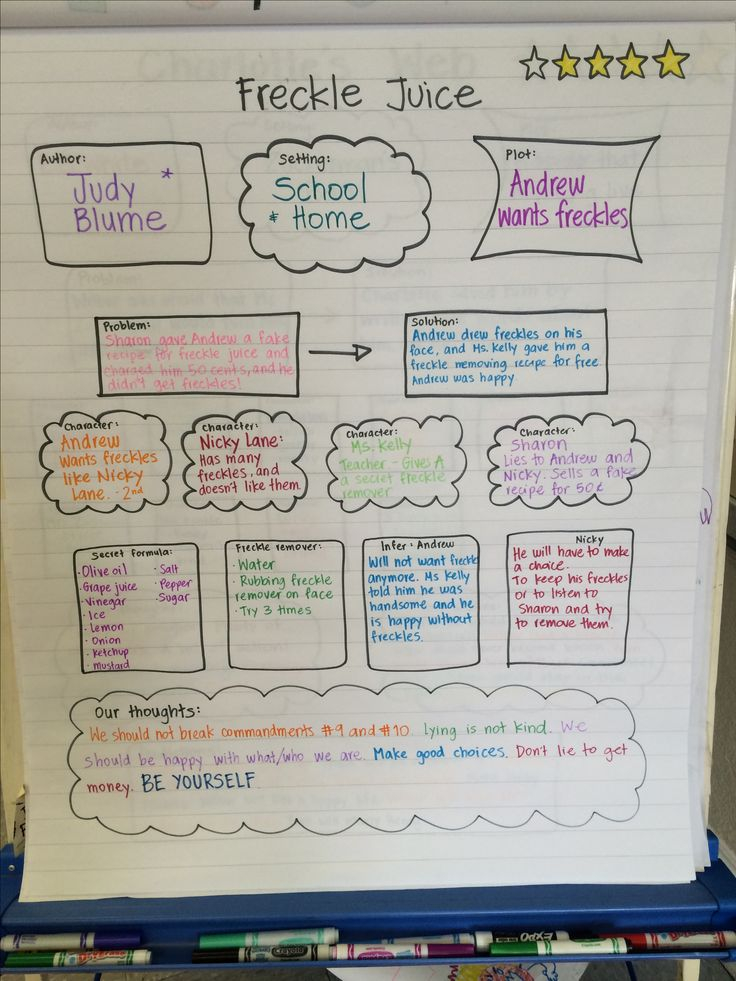 Freckle Juice
Author:
Judy *
Blume
Setting:
School
& Home
Plot:
Andrew
wants freckles
Problem:
Sharon gave Andrew a fake
recipe for freckle juice and
charged him 50 cents, and he
didn't get freckles!
Solution:
Andrew drew freckles on his
face, and Ms. Kelly gave him a
freckle removing recipe for free.
Andrew was happy
Character:
Andrew
wants freckles
like Nicky
Lane. - 2nd
Character:
Nicky Lane:
Has many
freckles, and
doesn't like them.
Character:
Ms. Kelly
Teacher - Gives A
a secret freckle
remover
Character:
Sharon
Lies to Andrew and
Nicky. Sells a fake
recipe for 50¢
Secret formula:
· Olive oil · Salt
· Grape juice · Pepper
· Vinegar · Sugar
· Ice
· Lemon
· Onion
· ketchup
· mustard
Freckle remover:
· Water
· Rubbing freckle
remover on face
· Try 3 times
Infer: Andrew
Will not want freckles
anymore. Ms Kelly
told him he was
handsome and he
is happy without
freckles.
Nicky
He will have to make
a choice.
To keep his freckles
or to listen to
Sharon and try
to remove them.
Our thoughts:
We should not break commandments #9 and #10. Lying is not kind. We
should be happy with what/who we are. Make good choices. Don't lie to get
money. BE YOURSELF.
Crayola
EXPO